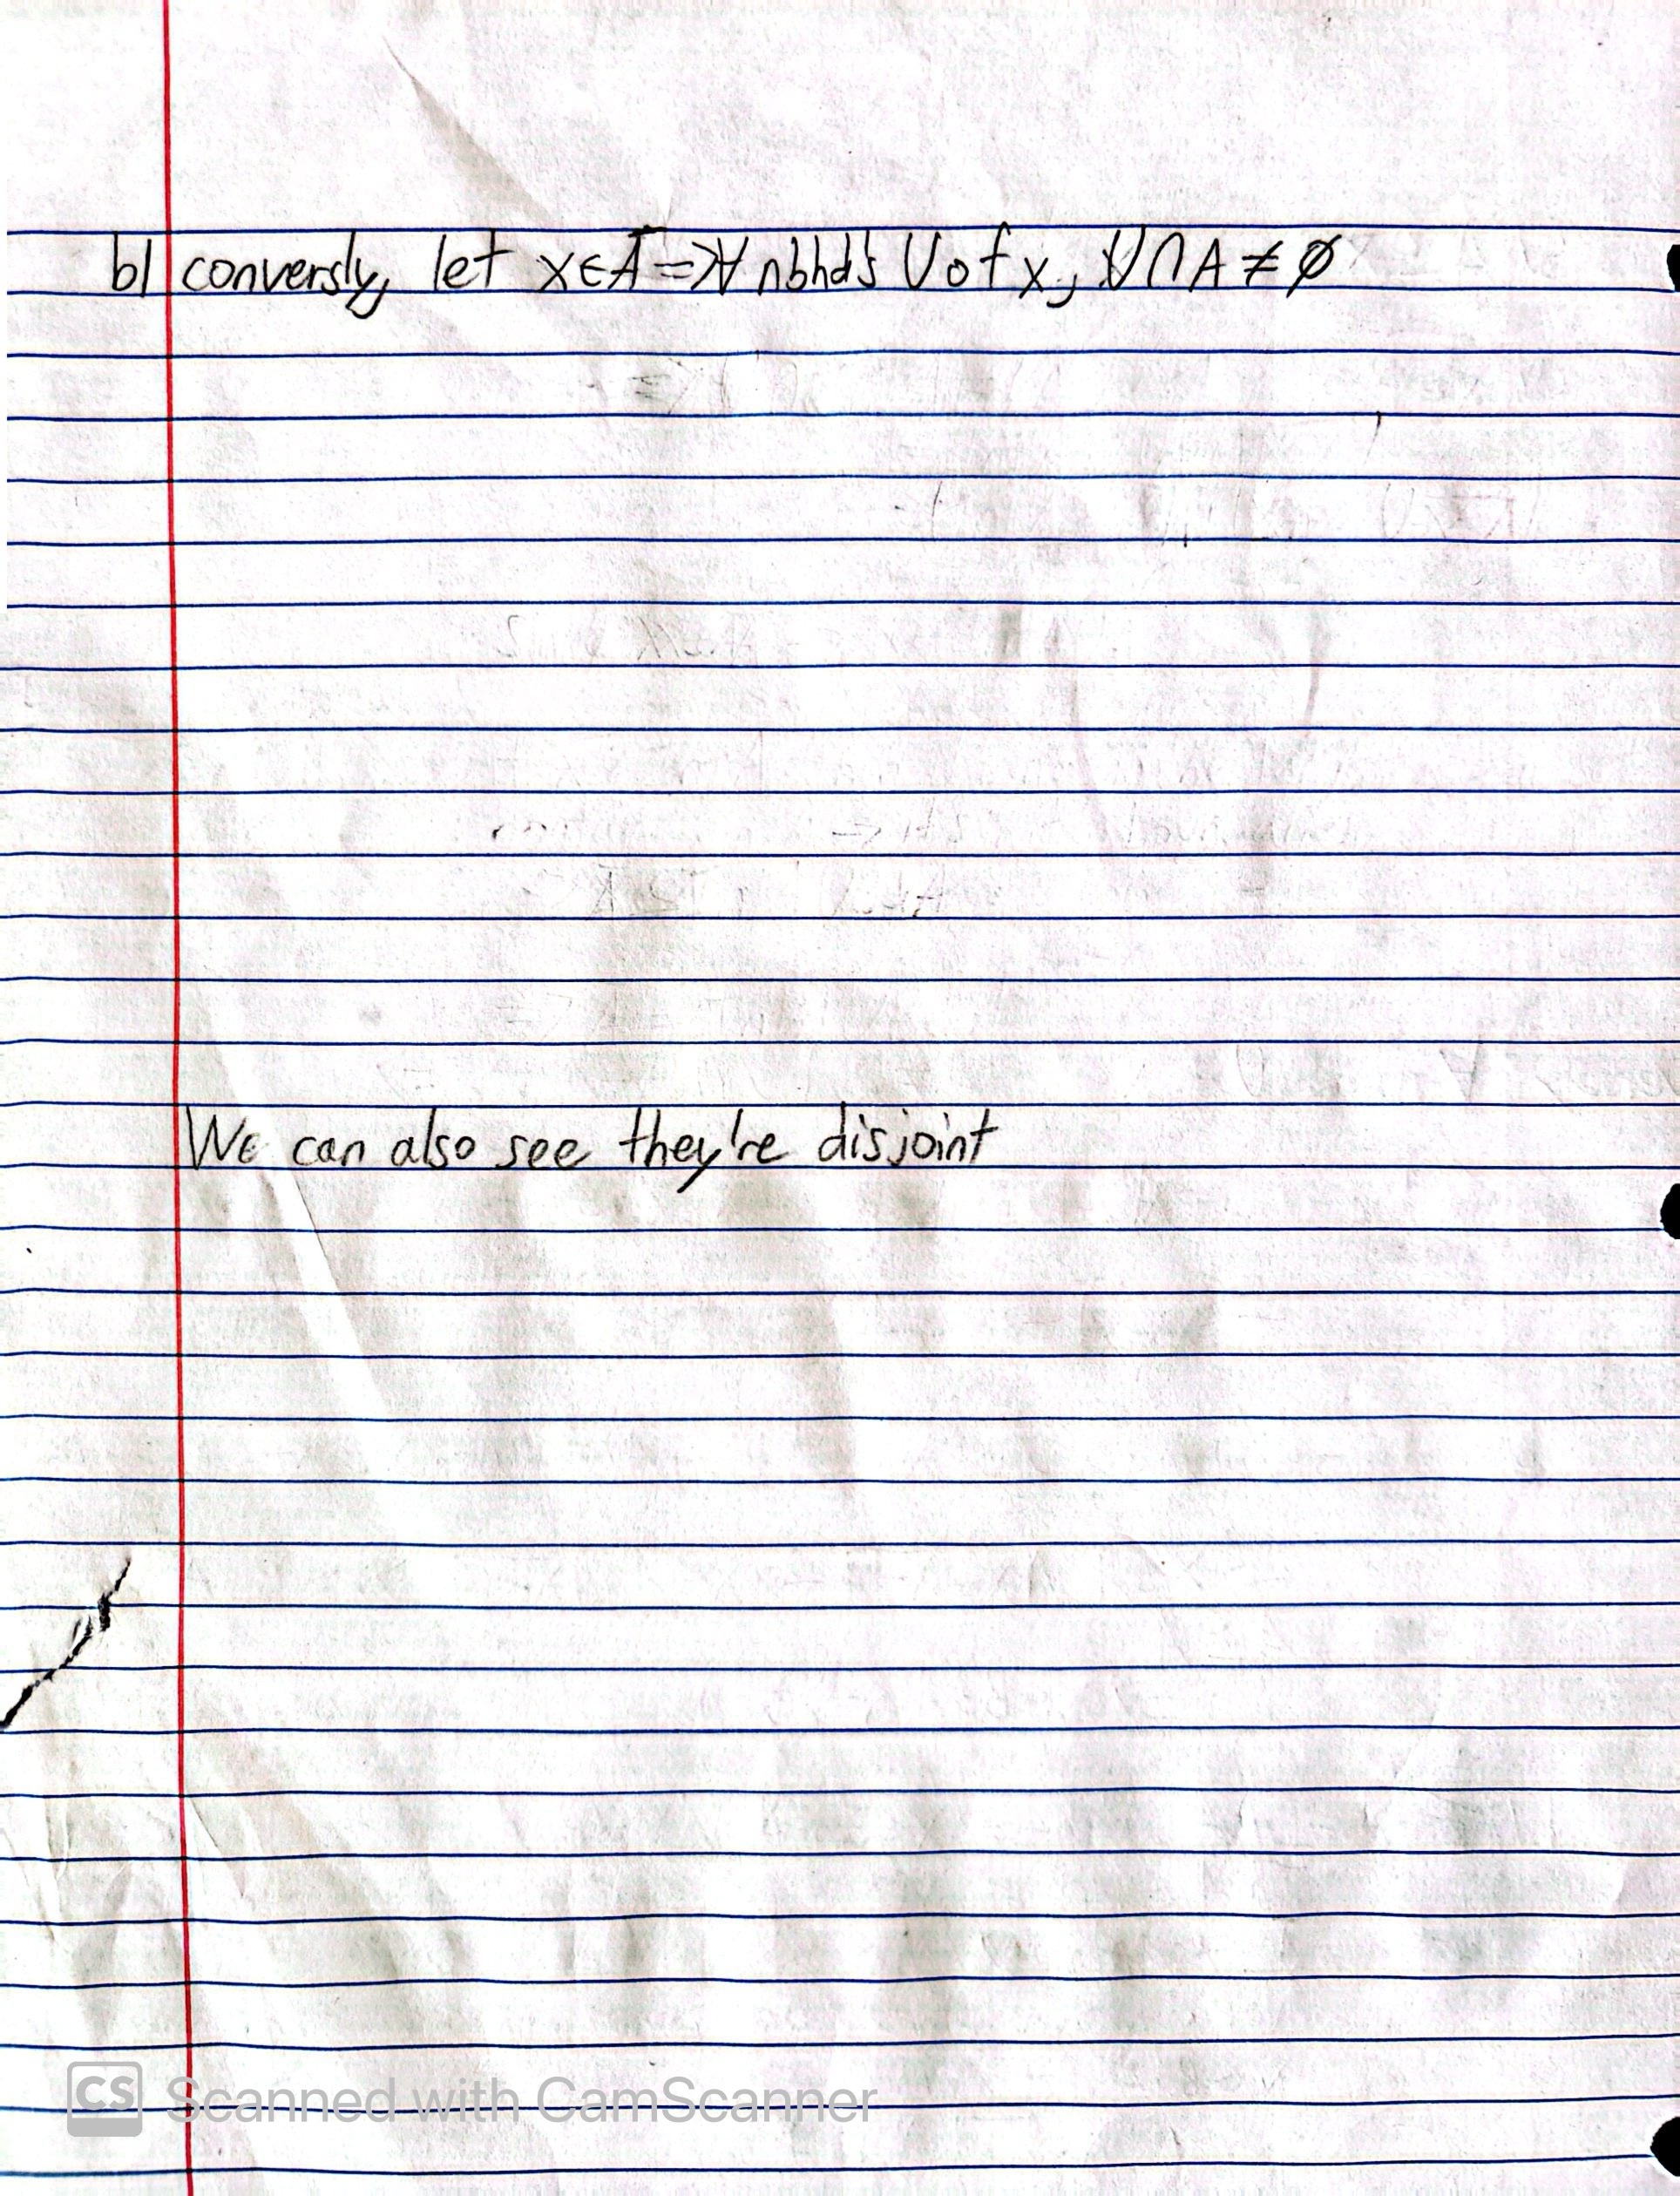 b) conversly, let x∈Ā => ∀ nbhds U of x, U∩A ≠ ∅
We can also see they're disjoint
CS Scanned with CamScanner